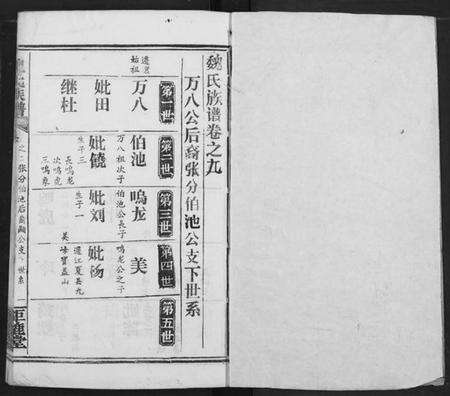 魏氏族谱卷之九
万八公后裔张分伯池公支下世系
第一世
第二世
第三世
第四世
第五世
迁豊始祖
万八
妣田
继杜
伯池
万八祖次子
妣饶
生子三
長鳴龙
次鳴虎
三鳴彦
鸣龙
伯池公長子
妣刘
生子一
美
美
鸣龙公之子
妣杨
遷江夏县九
峰宝盖山
族譜
張分伯池后裔公支下世系
一
巨鹿堂